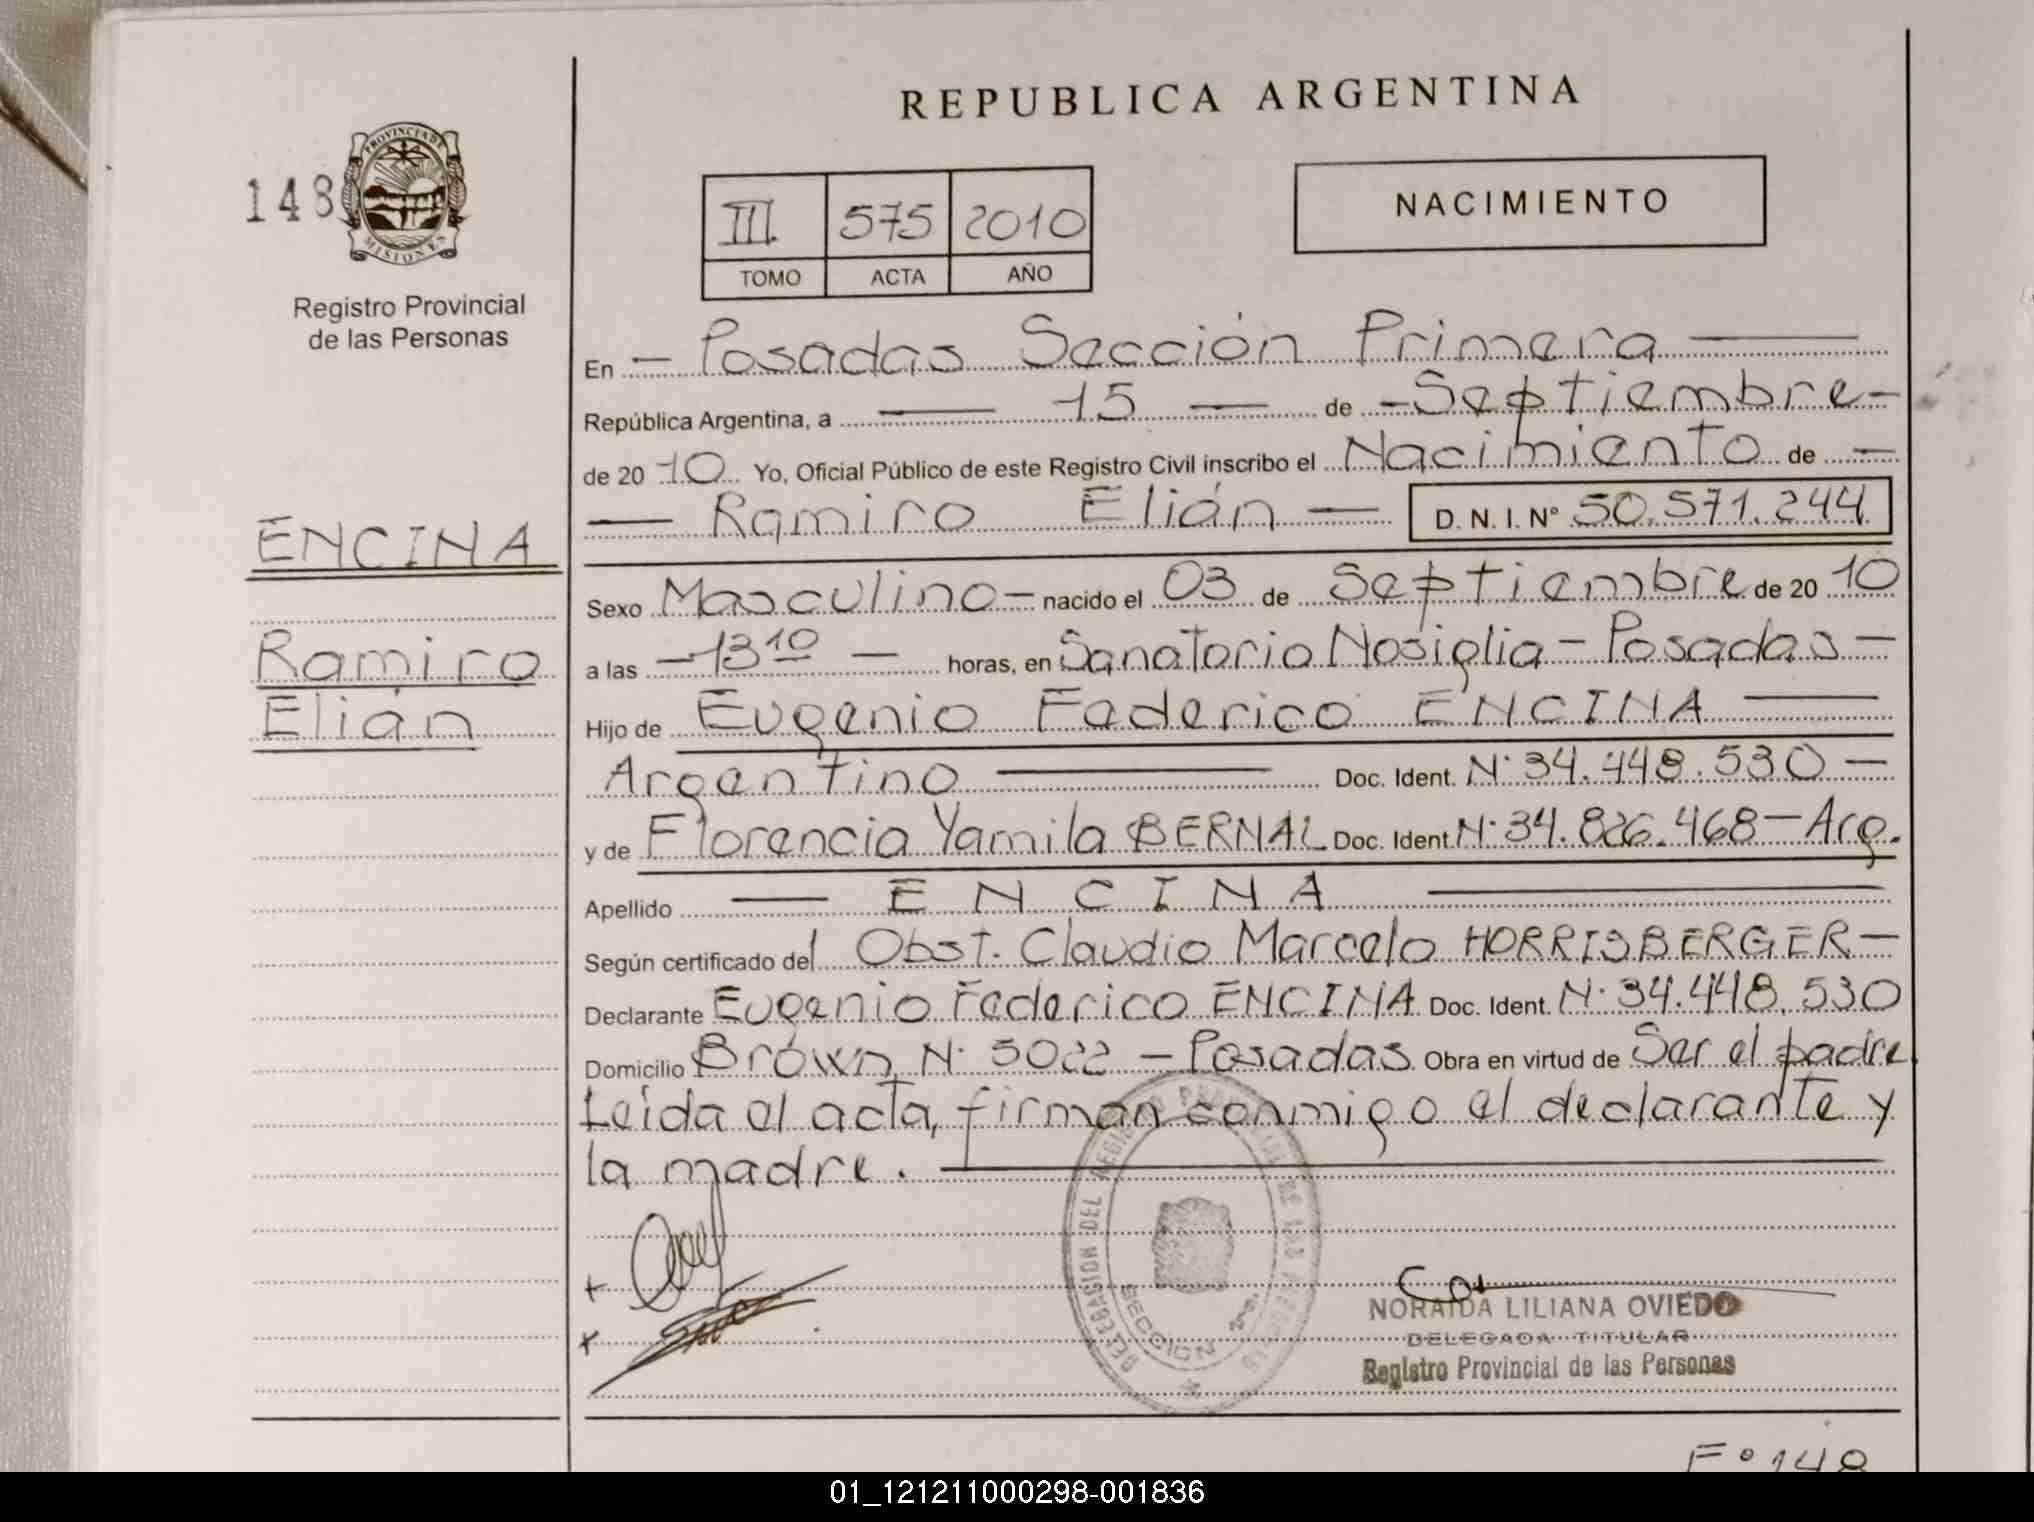 REPUBLICA ARGENTINA
148
PROVINCIA DE
MISIONES
Registro Provincial
de las Personas
III 575 2010
TOMO ACTA AÑO
NACIMIENTO
En — Posadas Sección Primera —
República Argentina, a — 15 — de — Septiembre —
de 2010 Yo, Oficial Público de este Registro Civil inscribo el Nacimiento de —
— Ramiro Elián — D. N. I. Nº 50.571.244
ENCINA
Ramiro
Elián
Sexo Masculino — nacido el 03 de Septiembre de 2010
a las — 13 10 — horas, en Sanatorio Nosiglia — Posadas —
Hijo de Eugenio Federico ENCINA —
Argentino — Doc. Ident. N· 34.448.530 —
y de Florencia Yamila BERNAL Doc. Ident. N· 34.826.468 — Arg.
Apellido — ENCINA —
Según certificado del Obst. Claudio Marcelo HORRISBERGER —
Declarante Eugenio Federico ENCINA Doc. Ident. N· 34.448.530
Domicilio Brówn N· 5022 — Posadas Obra en virtud de Ser el padre
Leída el acta, firman conmigo el declarante y
la madre. —
DELEGACION DEL REGISTRO PROVINCIAL DE LAS
SECCION
NORAIDA LILIANA OVIEDO
DELEGADA TITULAR
Registro Provincial de las Personas
Fº 148
01_121211000298-001836